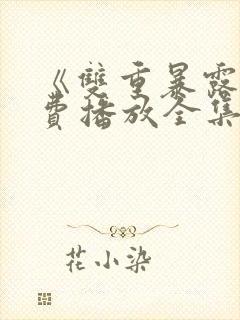 《雙重暴露
費播放全集
花小染